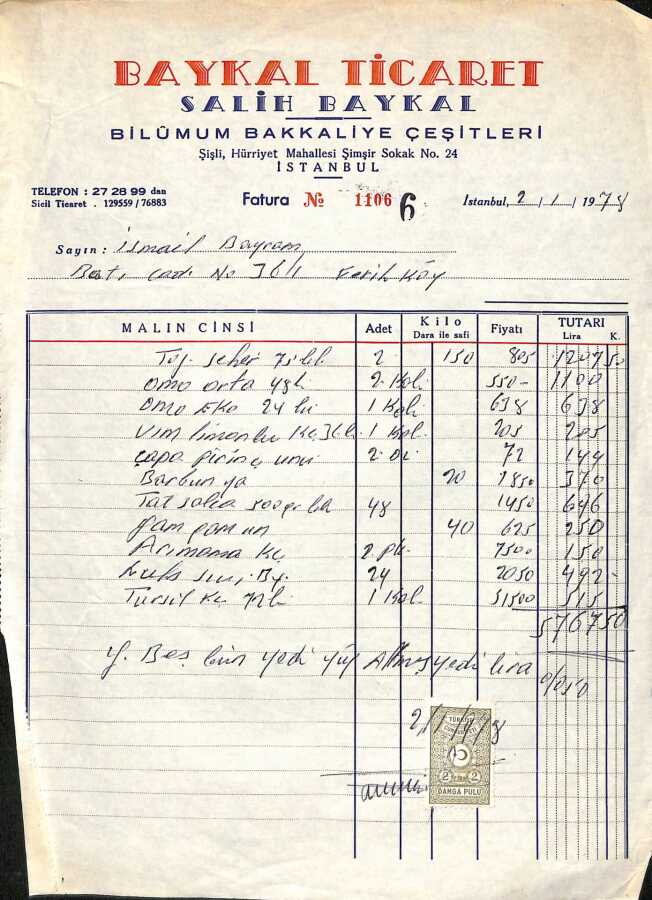 BAYKAL TİCARET
SALİH BAYKAL
BİLÛMUM BAKKALİYE ÇEŞİTLERİ
Şişli, Hürriyet Mahallesi Şimşir Sokak No. 24
İSTANBUL
TELEFON : 27 28 99 dan
Sicil Ticaret . 129559 / 76883
Fatura № 1106 6
İstanbul, 2 / 1 / 1978
Sayın : İsmail Bayram
Batı cad. No 36/1 Ferik köy
MALIN CİNSİ Adet Kilo Dara ile safi Fiyatı TUTARI Lira K.
Toz şeker 75 lik 2 150 805 1207 50
Omo orta 48 li 2 Koli 550- 1100
Omo Eko 24 lü 1 Koli 638 638
Vim limonlu Kç 36 lı 1 Kol. 205 205
Çapa pirinç unu 2 72 144
Barbunya 20 1850 370
Tat salça 500 gr lık 48 1450 696
un 40 625 250
Kç 2 pk. 7500 150
By. 24 2050 492-
Tursil Kç 72 li 1 Kol. 51500 515
5767 50
Y. Beş bin yedi yüz Altmış yedi lira
2/1/78
TÜRKİYE CUMHURİYETİ
2 LİRA 2
DAMGA PULU